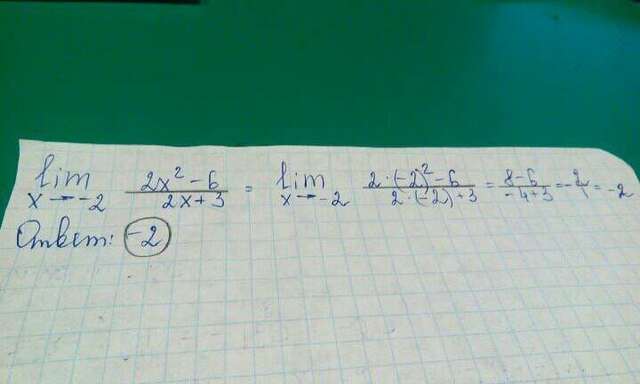 lim x→-2 (2x² - 6)/(2x + 3) = lim x→-2 (2·(-2)² - 6)/(2·(-2)+3) = (8-6)/(-4+3) = -2/1 = -2
Ответ: -2